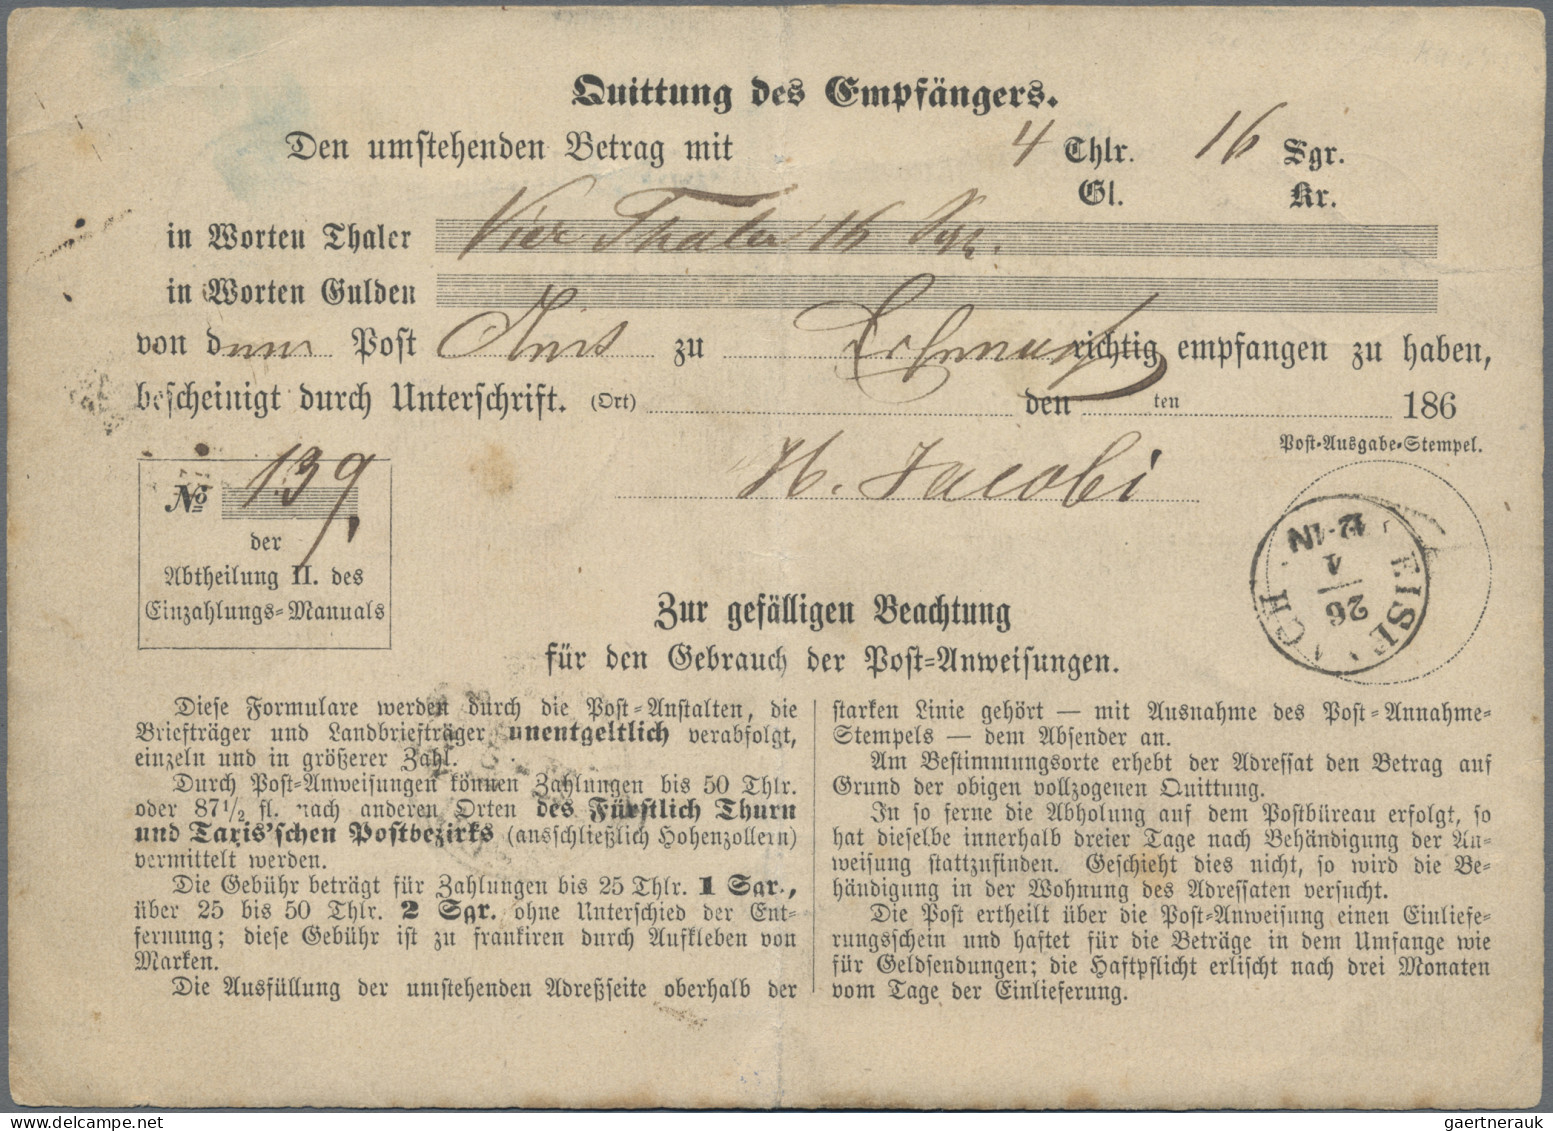 Quittung des Empfängers.
Den umstehenden Betrag mit 4 Thlr. 16 Sgr.
Gl. Kr.
in Worten Thaler Vier Thaler 16 Sgr.
in Worten Gulden
von d Post Amt zu richtig empfangen zu haben,
bescheinigt durch Unterschrift. (Ort) den ten 186
Post-Ausgabe-Stempel.
H. Jacobi
No 139
der
Abtheilung II. des
Einzahlungs-Manuals
EISENACH
26
1
12-1N
Zur gefälligen Beachtung
für den Gebrauch der Post-Anweisungen.
Diese Formulare werden durch die Post-Anstalten, die
Briefträger und Landbriefträger unentgeltlich verabfolgt,
einzeln und in größerer Zahl.
Durch Post-Anweisungen können Zahlungen bis 50 Thlr.
oder 87½ fl. nach anderen Orten des Fürstlich Thurn
und Taxis'schen Postbezirks (ausschließlich Hohenzollern)
vermittelt werden.
Die Gebühr beträgt für Zahlungen bis 25 Thlr. 1 Sgr.,
über 25 bis 50 Thlr. 2 Sgr. ohne Unterschied der Ent-
fernung; diese Gebühr ist zu frankiren durch Aufkleben von
Marken.
Die Ausfüllung der umstehenden Adreßseite oberhalb der
starken Linie gehört — mit Ausnahme des Post-Annahme-
Stempels — dem Absender an.
Am Bestimmungsorte erhebt der Adressat den Betrag auf
Grund der obigen vollzogenen Quittung.
In so ferne die Abholung auf dem Postbüreau erfolgt, so
hat dieselbe innerhalb dreier Tage nach Behändigung der An-
weisung stattzufinden. Geschieht dies nicht, so wird die Be-
händigung in der Wohnung des Adressaten versucht.
Die Post ertheilt über die Post-Anweisung einen Einliefe-
rungsschein und haftet für die Beträge in dem Umfange wie
für Geldsendungen; die Haftpflicht erlischt nach drei Monaten
vom Tage der Einlieferung.
gaertnerauk @ delcampe.net